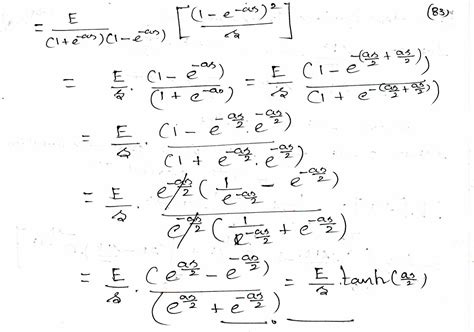 (83)
= E / ((1+e^{-as})(1-e^{-as})) [ (1-e^{-as})^2 / s ]
= E/s . (1-e^{-as}) / (1+e^{-as}) = E/s (1-e^{-(as/2+as/2)}) / (1+e^{-(as/2+as/2)})
= E/s . (1-e^{-as/2}.e^{-as/2}) / (1+e^{-as/2}.e^{-as/2})
= E/s . e^{-as/2}(1/e^{-as/2} - e^{-as/2}) / e^{-as/2}(1/e^{-as/2} + e^{-as/2})
= E/s . (e^{as/2} - e^{-as/2}) / (e^{as/2} + e^{-as/2}) = E/s . tanh(as/2)